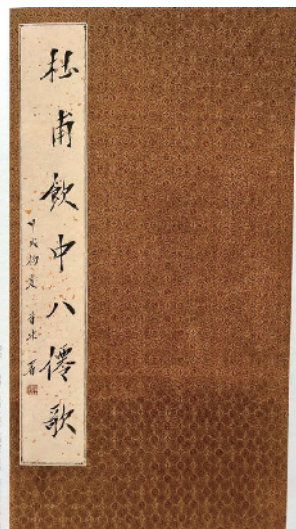 杜甫飲中八僊歌
甲戌初夏